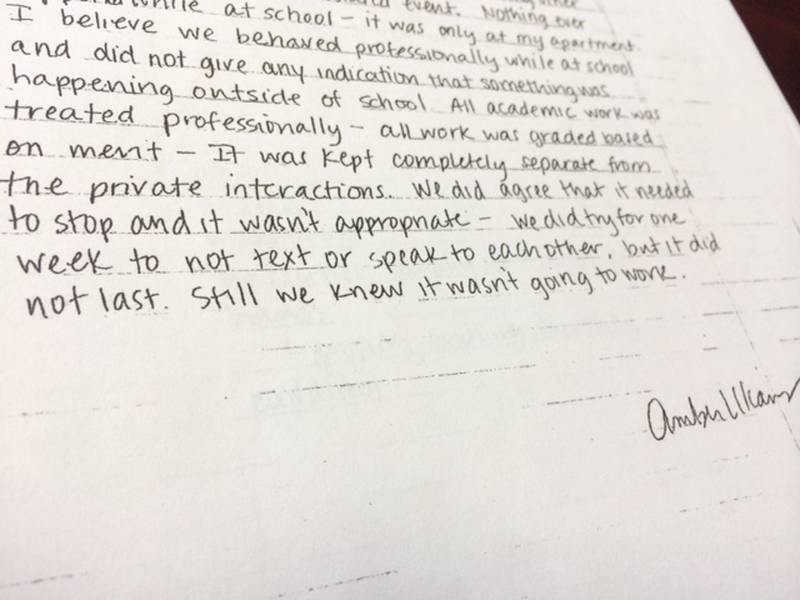 while at school – it was only at my apartment
event. Nothing ever
I believe we behaved professionally while at school
and did not give any indication that something was
happening outside of school All academic work was
treated professionally – all work was graded based
on merit – It was kept completely separate from
the private interactions. We did agree that it needed
to stop and it wasn't appropriate – we did try for one
week to not text or speak to each other, but it did
not last. Still we knew it wasn't going to work.
Amber